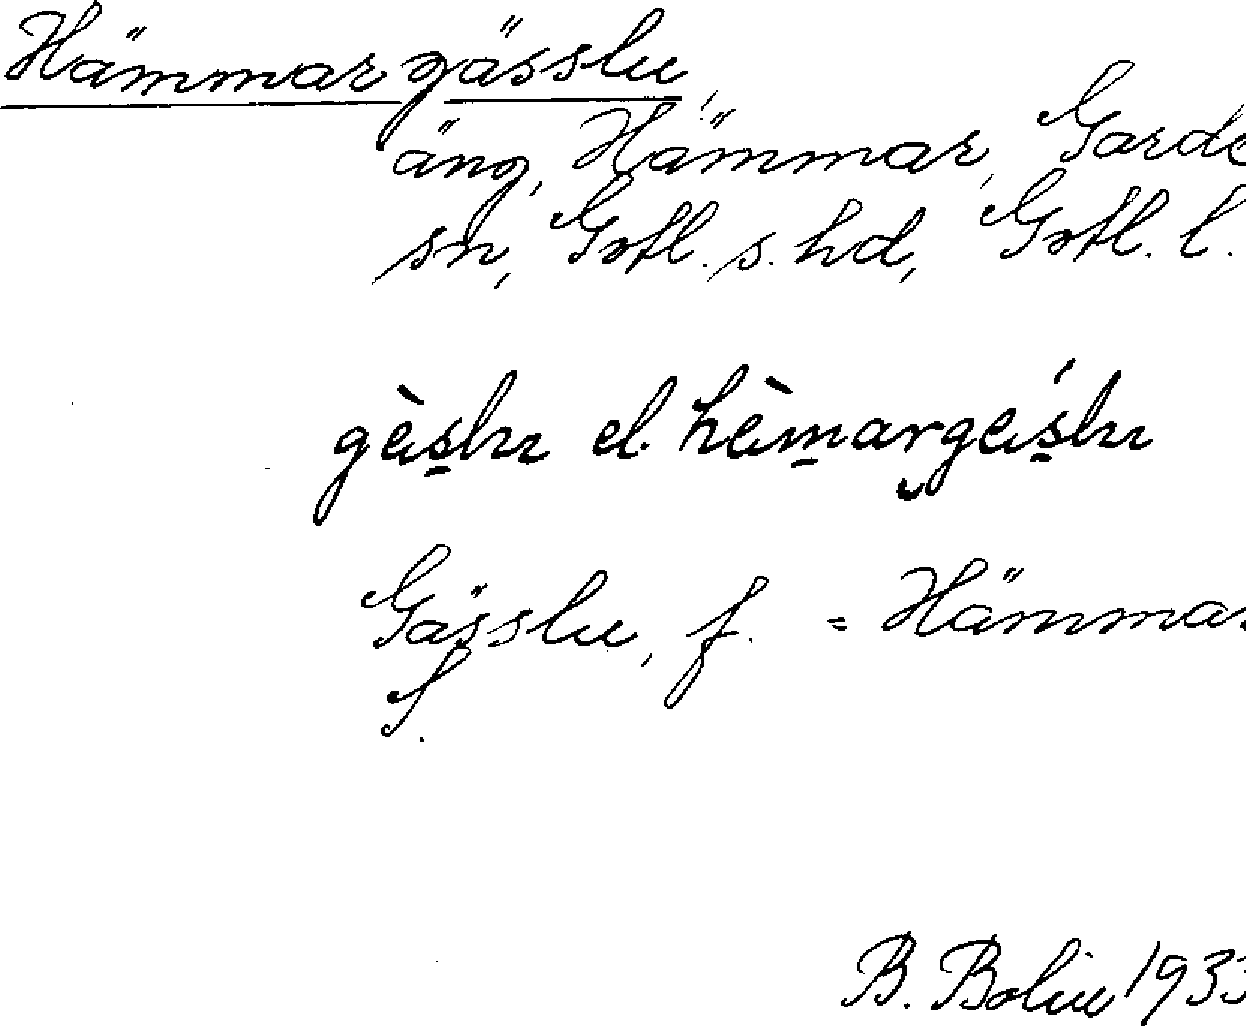 Hämmargässlu,
äng, Hämmar, Garde
sn, Gotl. s. hd, Gotl. l.
gässlu el. hämargäslu
Gässlu, f. = Hämmar
f.
B. Bolin 1933